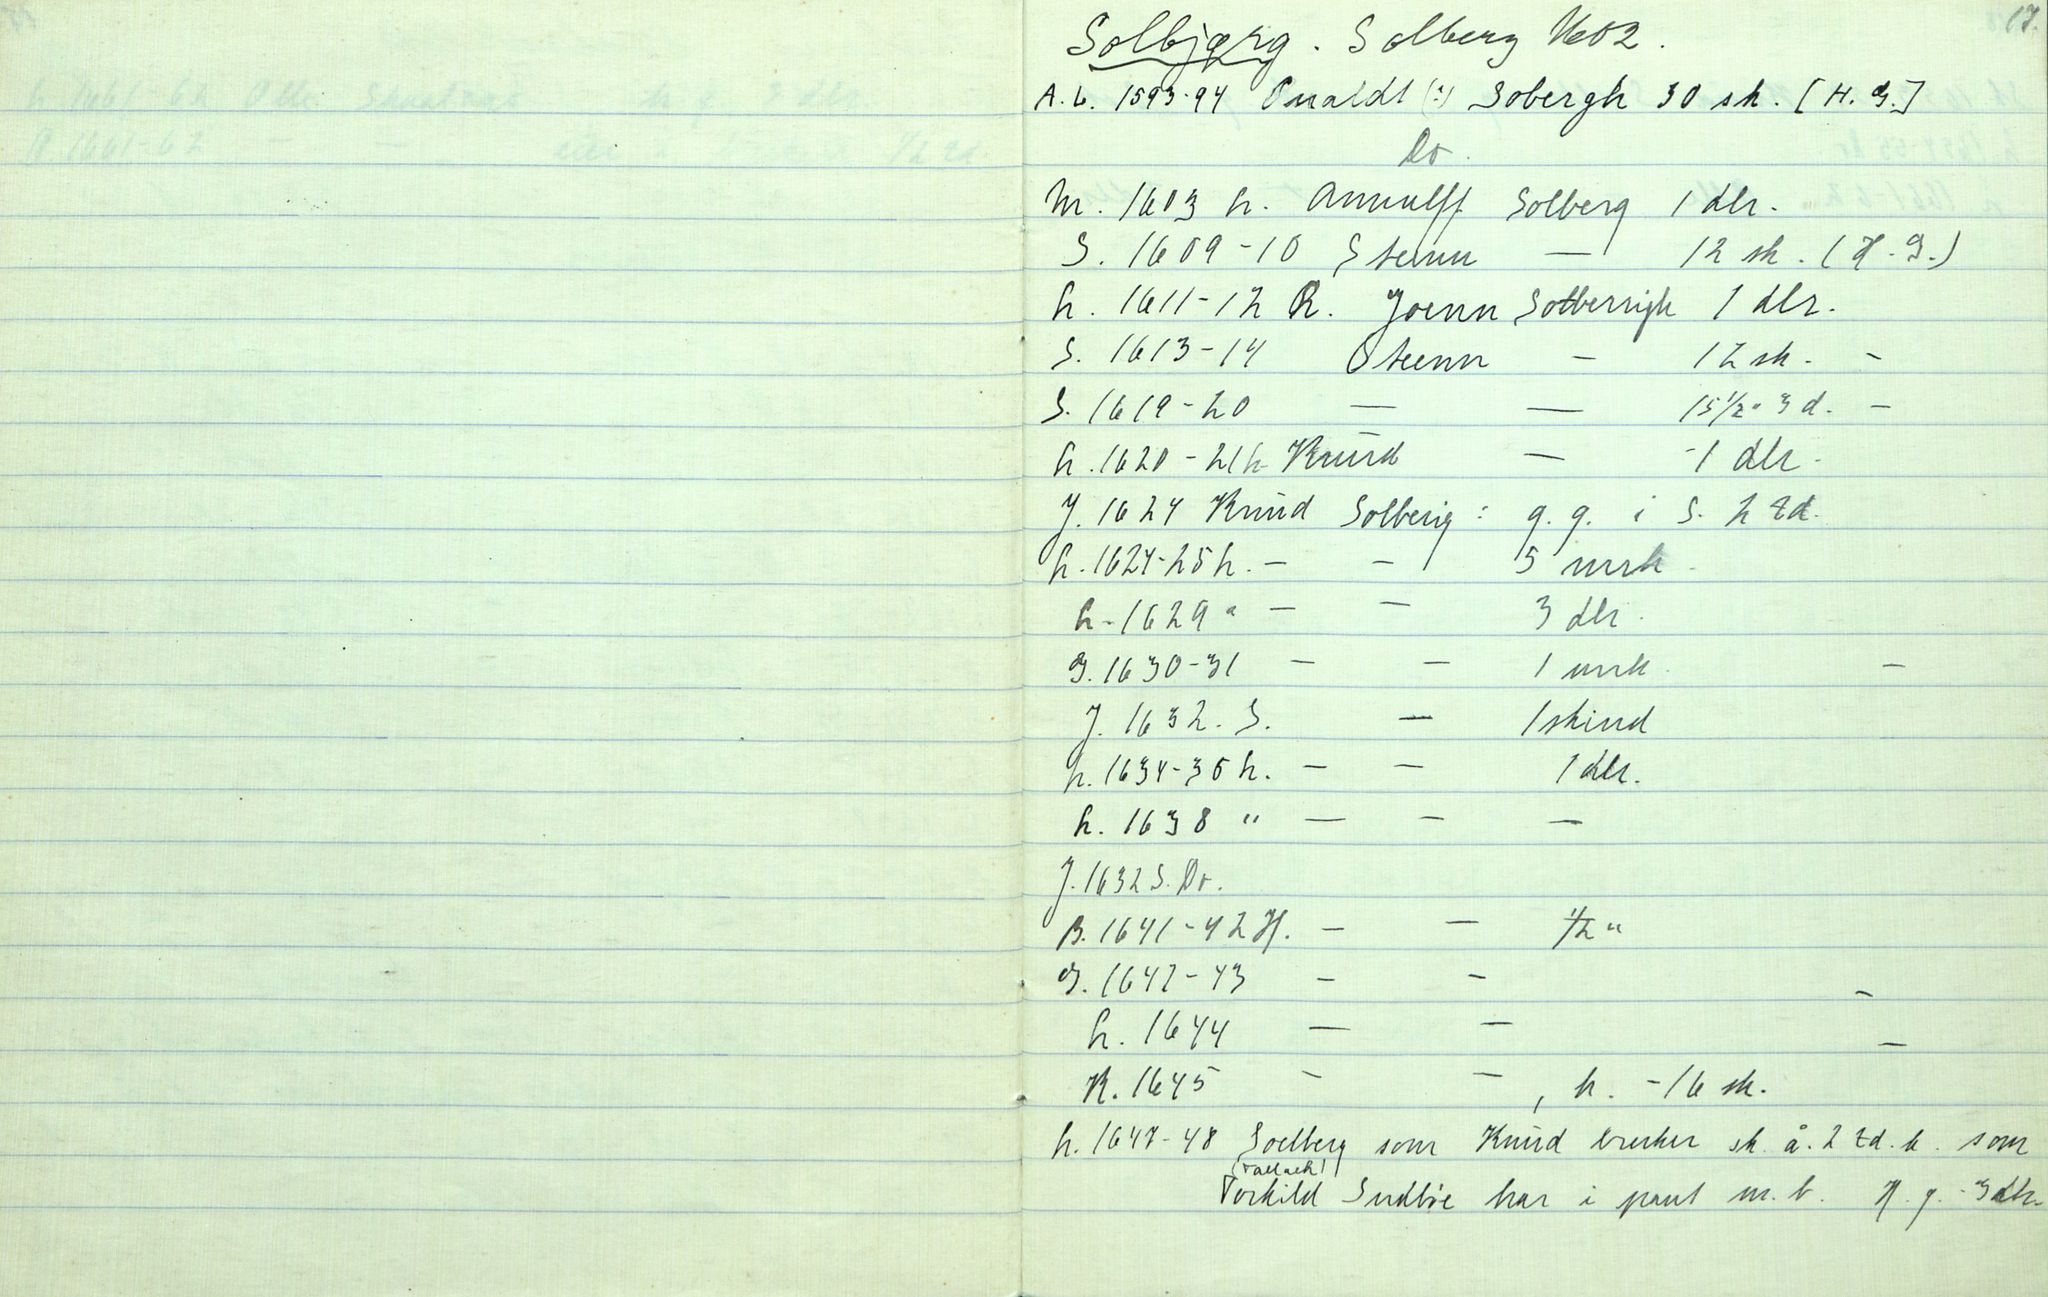 17.
Solbjørg. Solberg 1602.
A. L. 1593-94 Onaldt (?) Sobergh 30 sk. [H. G.]
Do.
M. 1603 h. Annulff Solberg 1 dlr.
S. 1609-10 Stenn — 12 sk. (H. G.)
h. 1611-12 R. Joenn Solberrigh 1 dlr.
S. 1613-14 Steenn — 12 sk. -
S. 1619-20 — — 15 1/2 " 3 d. -
h. 1620-21 h. Knud — -1 dlr.
J. 1624 Knud Solberig: g. g. i S. 2 td.
h. 1624-25 h. - - 5 mrk
h. 1629 " - - 3 dlr.
G. 1630-31 - - 1 mrk. -
J. 1632. S. - 1 skind
h. 1634-35 h. - - 1 dlr.
h. 1638 " - - -
J. 1632 S. Do.
B. 1641-42 H. - - 1/2 "
G. 1642-43 - - -
h. 1644 - - -
K. 1645 - - , h. -16 sk.
h. 1647-48 Soelberg som Knud bruker sk. å. 2 td. k. som
Torkild Sudbøe har i pant m. b. H. g. -3 dlr.